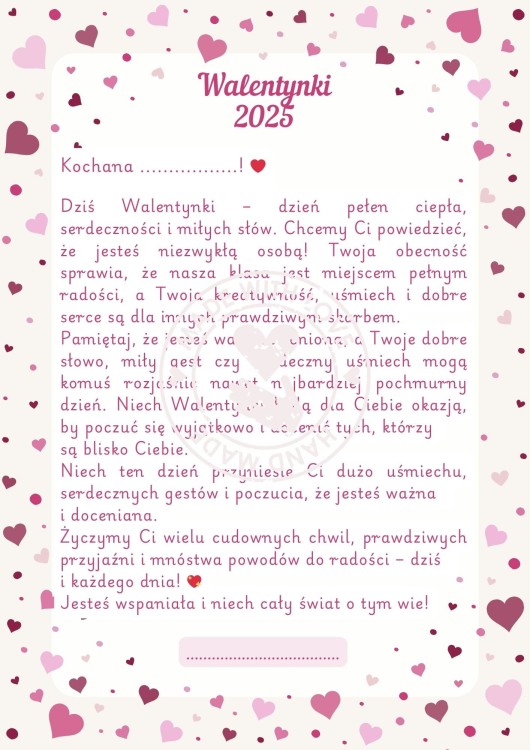 Walentynki
2025
Kochana .................! ❤️
Dziś Walentynki – dzień pełen ciepła,
serdeczności i miłych słów. Chcemy Ci powiedzieć,
że jesteś niezwykłą osobą! Twoja obecność
sprawia, że nasza klasa jest miejscem pełnym
radości, a Twoja kreatywność, uśmiech i dobre
serce są dla innych prawdziwym skarbem.
Pamiętaj, że jesteś a Twoje dobre
słowo, miły gest czy serdeczny uśmiech mogą
komuś rozjaśnić nawet najbardziej pochmurny
dzień. Niech Walentynki będą dla Ciebie okazją,
by poczuć się wyjątkowo i docenić tych, którzy
są blisko Ciebie.
Niech ten dzień przyniesie Ci dużo uśmiechu,
serdecznych gestów i poczucia, że jesteś ważna
i doceniana.
Życzymy Ci wielu cudownych chwil, prawdziwych
przyjaźni i mnóstwa powodów do radości – dziś
i każdego dnia! 💝
Jesteś wspaniała i niech cały świat o tym wie!
......................................
MADE WITH LOVE
HAND MADE